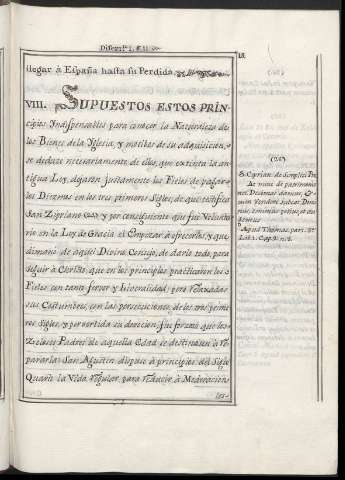 Discurso. 1. §. II.
15
llegar à España hasta su Perdida.
VIII. SUPUESTOS ESTOS PRIN-
cipios Indispensables para conocer la Naturaleza de
los Bienes de la Iglesia, y motibos de su adquisicion,
se deduce necesariamente de ellos, que extinta la an
tigua Ley, dejaron justamente los Fieles de pagar
los Diezmos en los tres primeros Siglos, de que testifica
San Zipriano (20) y por consiguiente que fue Volunta
rio en la Ley de Gracia el Empezar à ofrecerlos, y que
dimanò de aquel Divino Consejo, de darlo todo para
seguir à Christo, que en los principios practicaron los
Fieles con tanto fervor y Liberalidad, pero relaxadas
sus Costumbres, con las persecuciones de los tres prime
ros Siglos, y pervertida su devocion, fue forzoso que los
Zelosos Padres de aquella Edad se destinasen à re
pararla: San Agustin dispuso à principios del Siglo
Quarto la Vida regular, para reducir à Moderacion
los-
(20)
S. Cyprian. de Simplici. Prae.
At nunc de patrimonio
nec Decimas damus, et
cum Vendere jubeat Domi-
nus, emimus potius, et au
gemus
Apud Thomas. part. 3ª
Lib. 1. Cap. 1. n. 2.